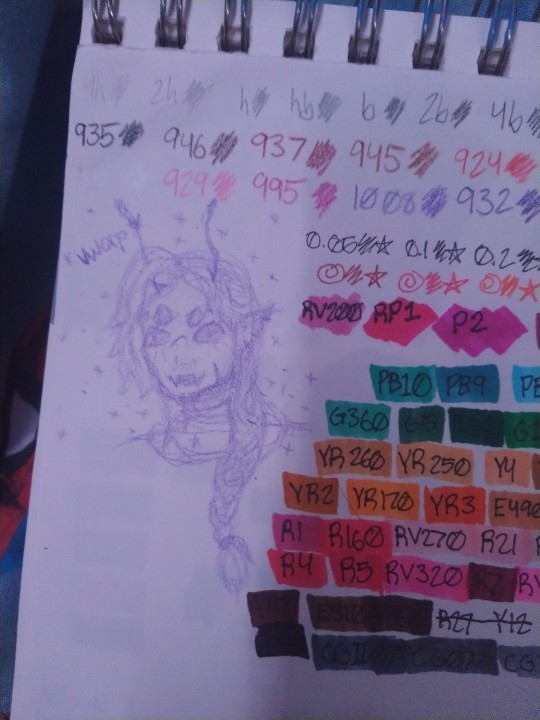 9h 2h h hb b 2b 4b
935 946 937 945 924
929 995 1008 932
0.05 0.1 0.2
RV200 RP1 P2
PB10 PB9 PB
G360 G5 G1
YR260 YR250 Y4
YR2 YR170 YR3 E490
R1 R160 RV270 R21 R
R4 R5 RV320 R7 RV
E312 R27 Y12